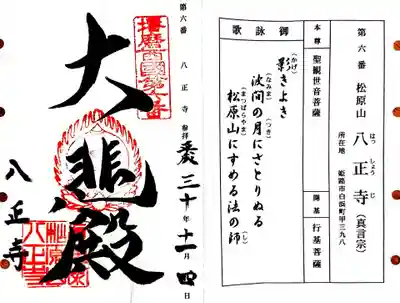 第六番 松原山 八正寺（真言宗）
はっしょうじ
所在地 姫路市白浜町甲三九八
本尊 聖観世音菩薩
開基 行基菩薩
御詠歌
影きよき
（かげ）
波間の月にさとりぬる
（なみま）（つき）
松原山にすめる法の師
（まつばらやま）（し）
第六番 八正寺 参拝
平成三十年十一月四日
播磨西國第六番
大悲殿
八正寺